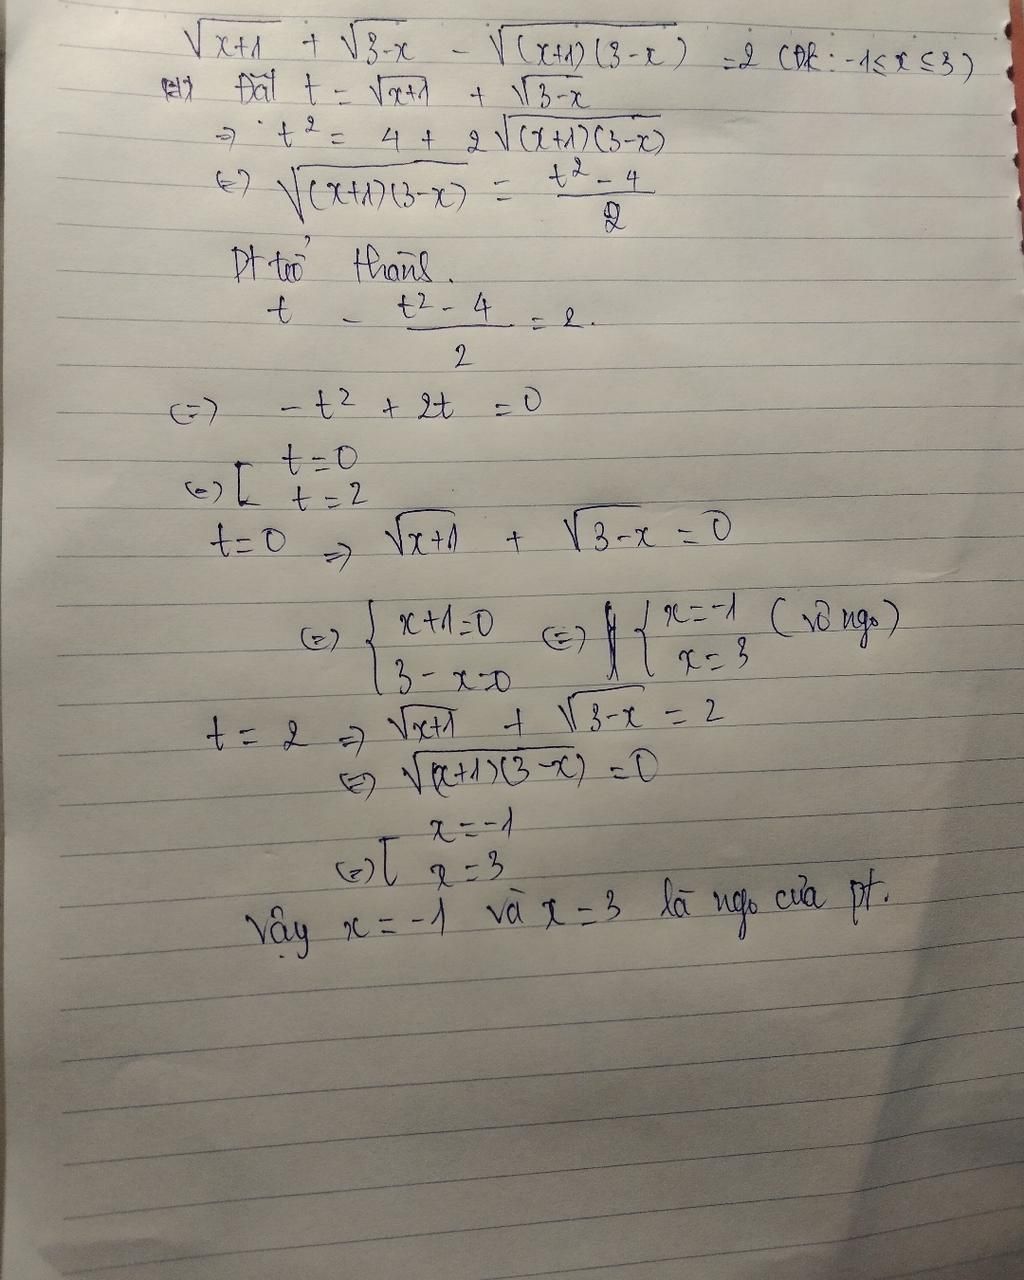 √x+1 + √3-x - √(x+1)(3-x) = 2 (ĐK: -1≤x≤3)
Đặt t = √x+1 + √3-x
=> t² = 4 + 2√(x+1)(3-x)
<=> √(x+1)(3-x) = t² - 4 / 2
Pt trở thành.
t - t² - 4 / 2 = 2.
(=) - t² + 2t = 0
(=) [ t=0
t=2
t=0 => √x+1 + √3-x = 0
(=) { x+1=0 (=) { x=-1 (vô ngo)
3-x=0 x=3
t = 2 => √x+1 + √3-x = 2
(=) √(x+1)(3-x) = 0
(=) [ x=-1
x=3
Vậy x=-1 và x=3 là ngo của pt.